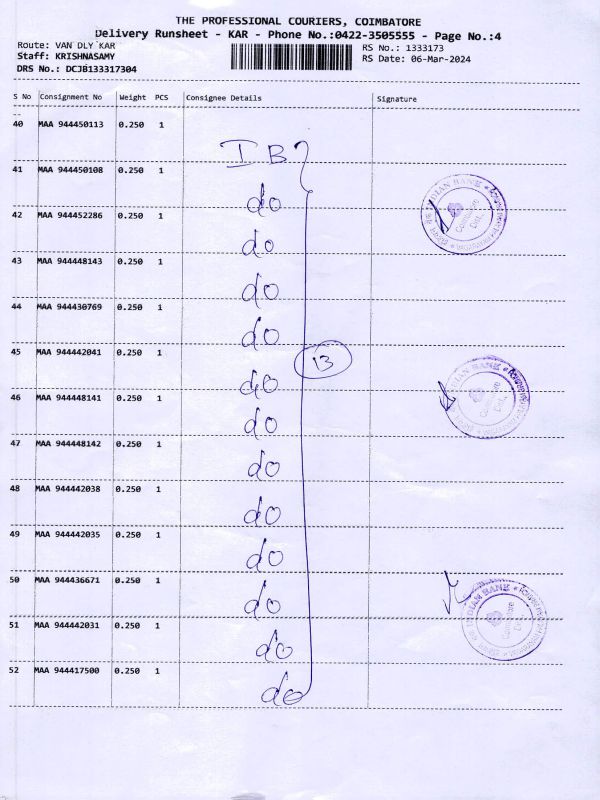 THE PROFESSIONAL COURIERS, COIMBATORE
Delivery Runsheet - KAR - Phone No.:0422-3505555 - Page No.:4
Route: VAN DLY KAR
RS No.: 1333173
Staff: KRISHNASAMY
RS Date: 06-Mar-2024
DRS No.: DCJB133317304
S No Consignment No Weight PCS Consignee Details Signature
40 MAA 944450113 0.250 1
I B
41 MAA 944450108 0.250 1
do
42 MAA 944452286 0.250 1
do
43 MAA 944448143 0.250 1
do
44 MAA 944430769 0.250 1
do
45 MAA 944442041 0.250 1
13
do
46 MAA 944448141 0.250 1
do
47 MAA 944448142 0.250 1
do
48 MAA 944442038 0.250 1
do
49 MAA 944442035 0.250 1
do
50 MAA 944436671 0.250 1
do
51 MAA 944442031 0.250 1
do
52 MAA 944417500 0.250 1
do
INDIAN BANK
Coimbatore
INDIAN BANK
Coimbatore
INDIAN BANK
Coimbatore